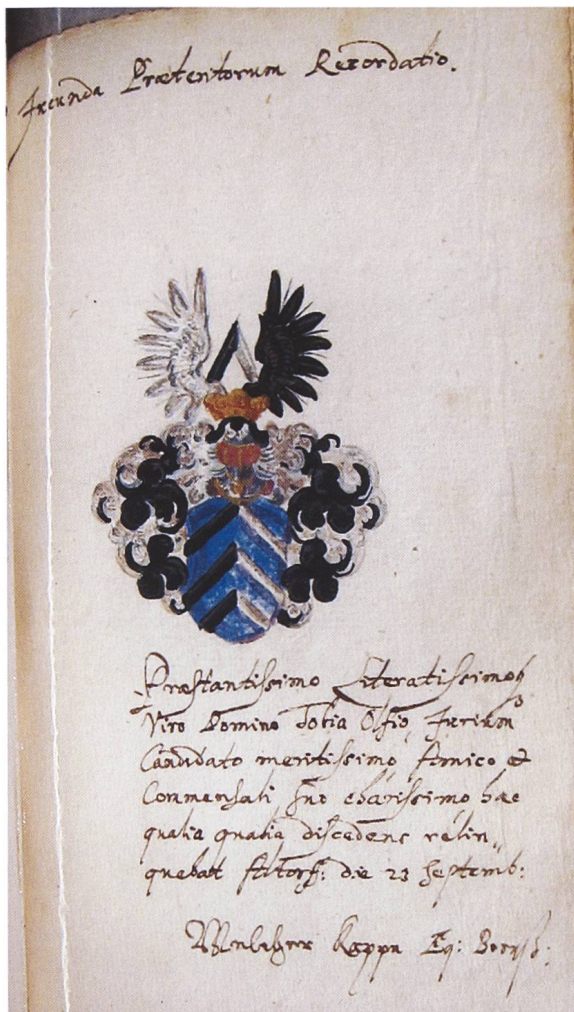 Jucunda Præteritorum Recordatio.
Præstantissimo Literatissimoq
Viro Domino Tobia Olfio, Jurium
Candidato meritissimo, Amico et
Commensali suo charissimo hæc
qualia qualia discedens relin„
quebat Altorf: die 23 Septemb:
Melcher Eq: